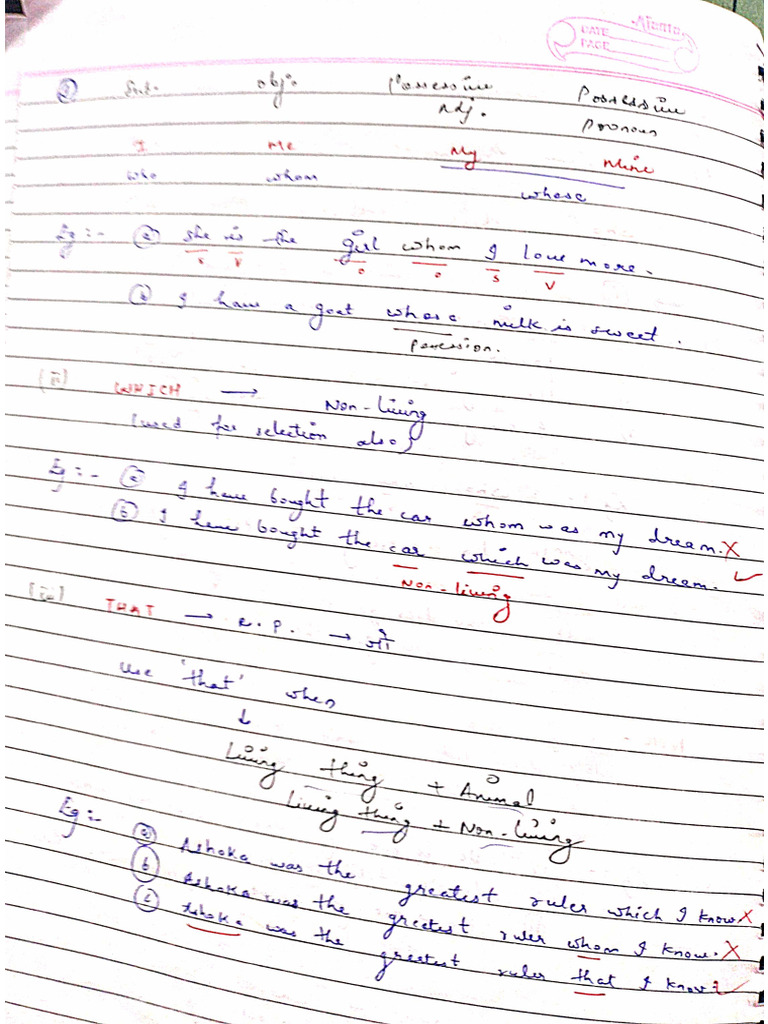 Atanta
DATE
PAGE
② Sub. obj. Possessive Possessive
Adj. Pronoun
I Me My Mine
who whom whose
Eg :- ⓐ she is the girl whom I love more.
s v o o s v
ⓑ I have a goat whose milk is sweet.
Possession.
(ii) WHICH → Non-living
(used for selection also)
Eg :- ⓐ I have bought the car whom was my dream. X
ⓑ I have bought the car which was my dream. ✓
Non-living
(iii) THAT → R.P. → जो
Use 'that' when
↓
Living thing + Animal
Living thing + Non-living
Eg :- ⓐ Ashoka was the greatest ruler which I know X
ⓑ Ashoka was the greatest ruler whom I know. X
ⓒ Ashoka was the greatest ruler that I know. ✓